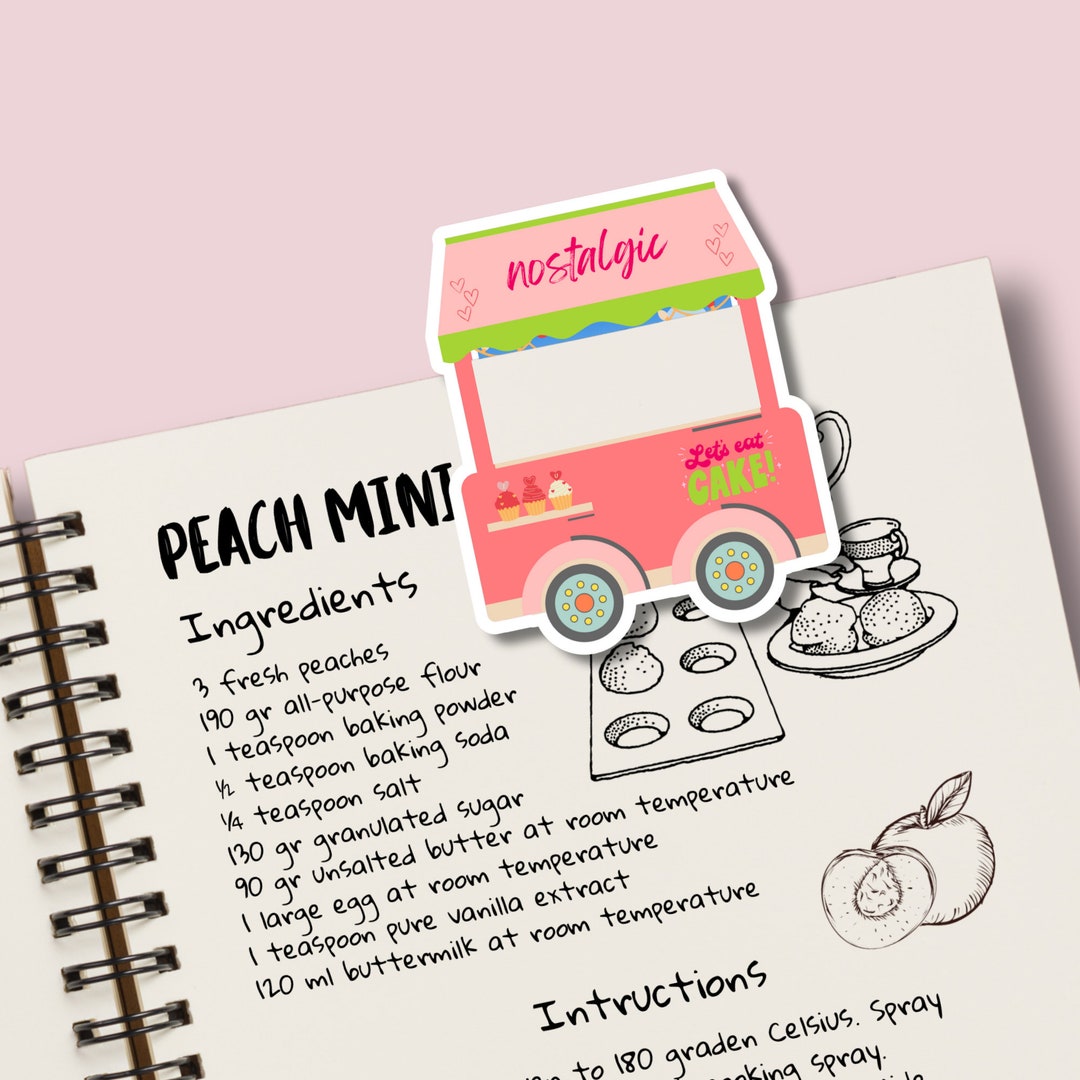 nostalgic
Let's eat
CAKE!
PEACH MINI
Ingredients
3 fresh peaches
190 gr all-purpose flour
1 teaspoon baking powder
½ teaspoon baking soda
¼ teaspoon salt
130 gr granulated sugar
90 gr unsalted butter at room temperature
1 large egg at room temperature
1 teaspoon pure vanilla extract
120 ml buttermilk at room temperature
Intructions
to 180 graden Celsius. Spray
spray.